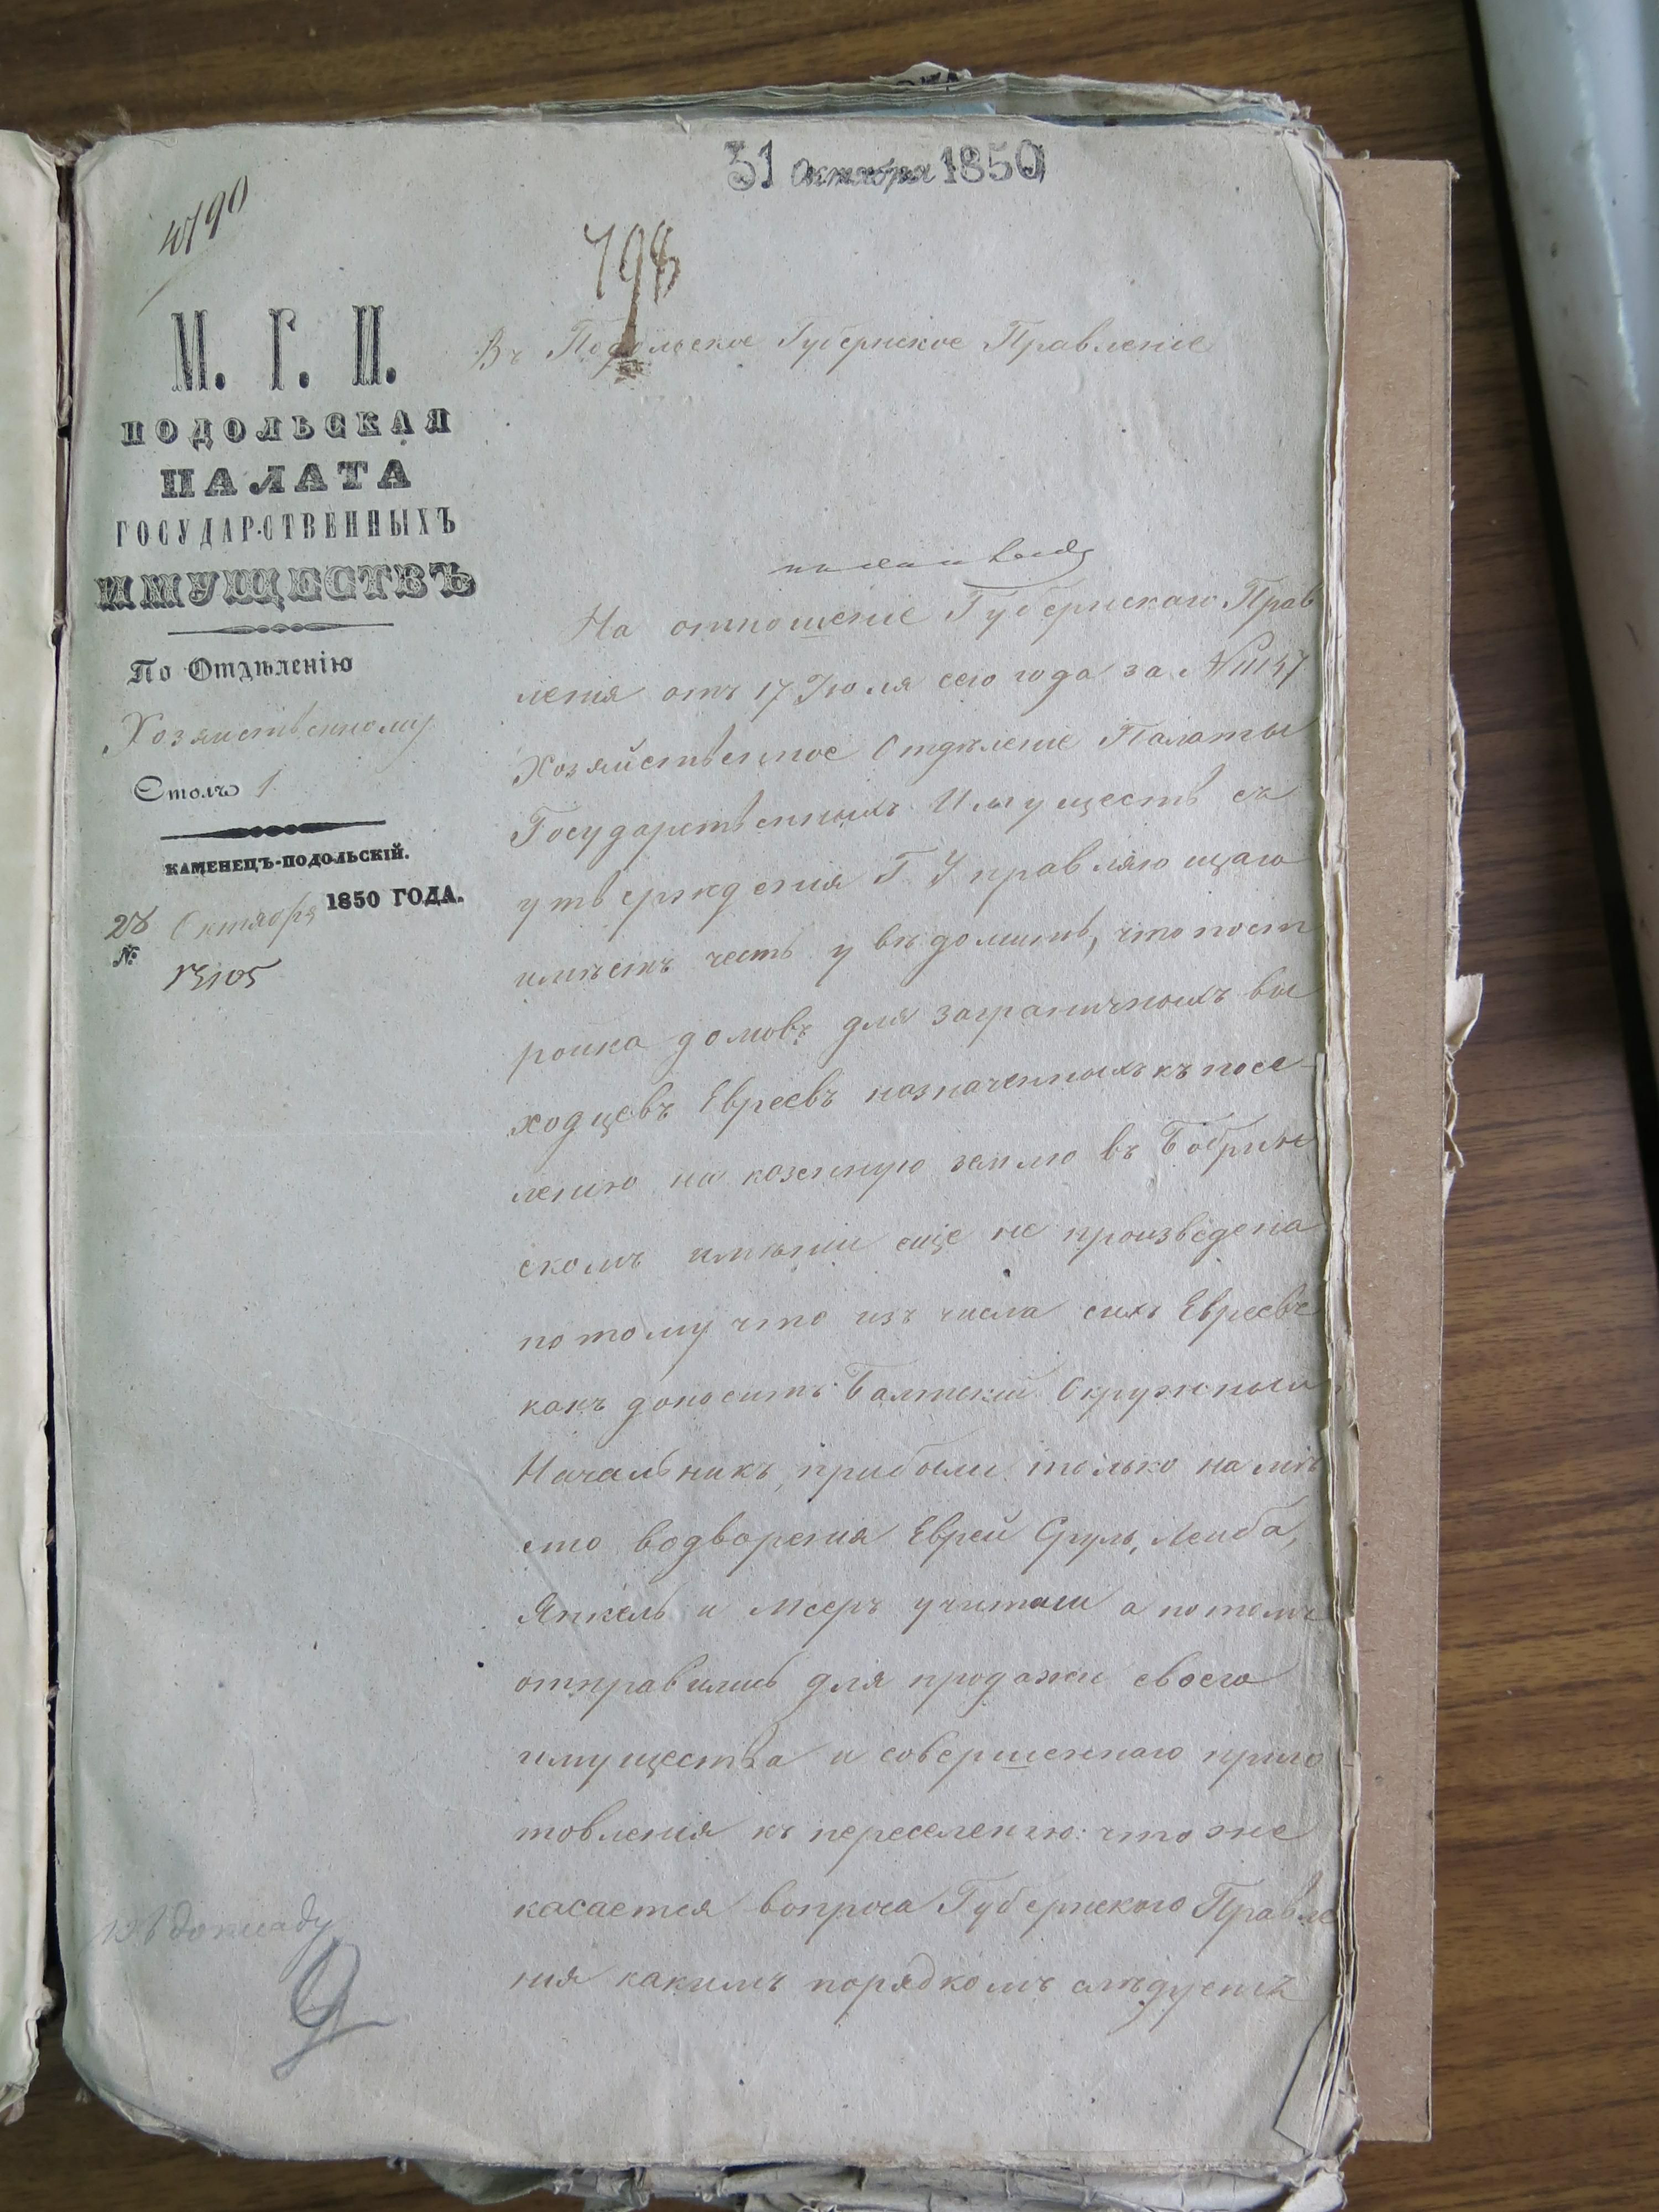 31 Октября 1850
4790
798
М. Г. И.
ПОДОЛЬСКАЯ
ПАЛАТА
ГОСУДАРСТВЕННЫХЪ
ИМУЩЕСТВЪ
По Отдѣленію
Хозяйственному
Столъ 1
КАМЕНЕЦЪ-ПОДОЛЬСКІЙ.
28 Октября 1850 ГОДА.
№
13105
Въ Подольское Губернское Правленіе
На отношеніе Губернскаго Прав
ленія отъ 17 Іюля сего года за №
Хозяйственное Отдѣленіе Палаты
Государственныхъ Имуществъ съ
утвержденія Г. Управляющаго
имѣетъ честь увѣдомить, что пост
ройка домовъ для заграничныхъ вы
ходцевъ Евреевъ назначенныхъ къ посе-
ленію на казенную землю въ Бобрин
скомъ имѣніи еще не произведена
потому что изъ числа сихъ Евреевъ
какъ доноситъ Балтскій Окружный
Начальникъ, прибыли только на мѣ
сто водворенія Евреи Сруль, Лейба,
Янкель и Мееръ а потомъ
отправились для продажи своего
имущества и совершеннаго приго-
товленія къ переселенію: что же
касается вопроса Губернскаго Правле
нія какимъ порядкомъ слѣдуетъ
къ докладу